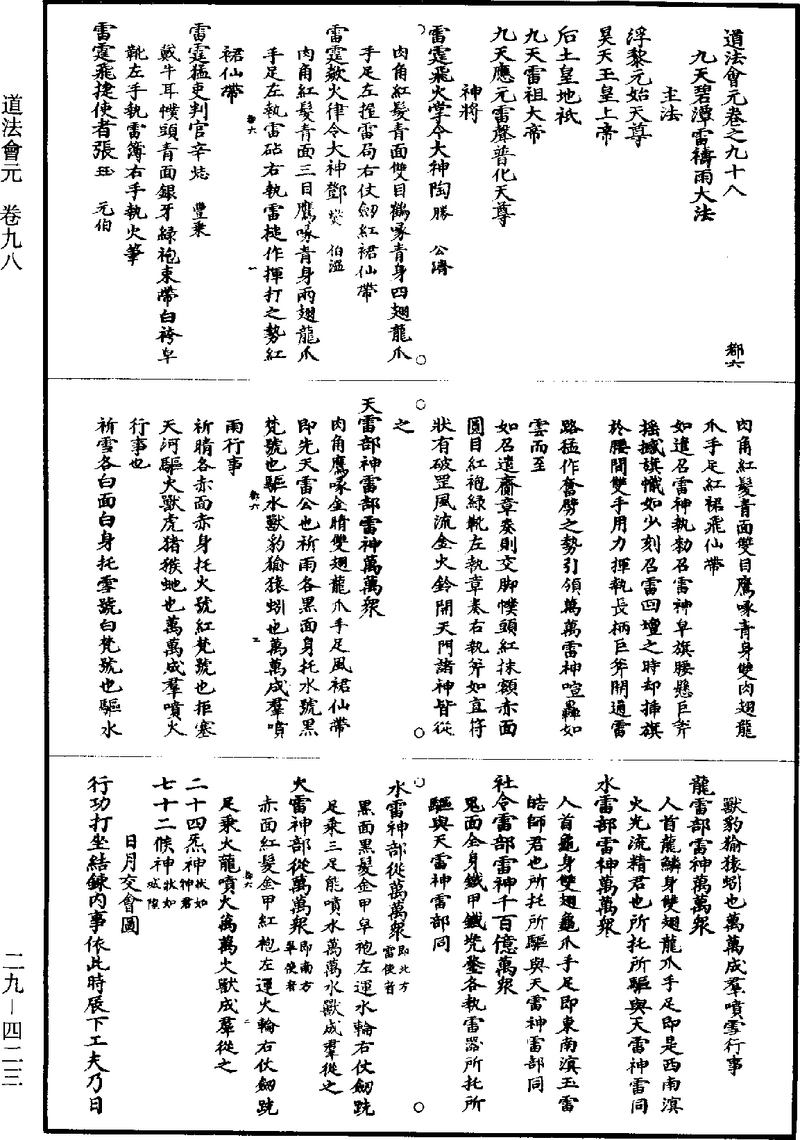 道法會元卷之九十八
都六
九天碧潭雷禱雨大法
主法
浮黎元始天尊
昊天玉皇上帝
后土皇地祇
九天雷祖大帝
九天應元雷聲普化天尊
神將
雷霆飛火掌令大神陶 勝 公濟
肉角紅髮青面雙目鶴喙青身四翅龍爪
手足左握雷局右仗劒紅裙仙帶
雷霆歘火律令大神鄧 燮 伯溫
肉角紅髮青面三目鷹喙青身兩翅龍爪
手足左執雷砧右執雷槌作揮打之勢紅
裙仙帶
都六 一
雷霆猛吏判官辛 㷓 豐乘
戴牛耳幞頭青面銀牙綠袍束帶白袴皁
靴左手執雷簿右手執火筆
雷霆飛捷使者張 珏 元伯
肉角紅髮青面雙目鷹喙青身雙肉翅龍
爪手足紅裙飛仙帶
如遣召雷神執勑召雷神皁旗腰懸巨斧
搖撼旗幟如少刻召雷回壇之時却插旗
於腰間雙手用力揮執長柄巨斧開通雷
路猛作奮劈之勢引領萬萬雷神喧轟如
雲而至
如召遣齎章奏則交脚幞頭紅抹額赤面
圓目紅袍綠靴左執章奏右執斧如直符
狀有破罡風流金火鈴開天門諸神皆從
之
天雷部神雷部雷神萬萬衆
肉角鷹喙金睛雙翅龍爪手足風裙仙帶
即先天雷公也祈雨各黑面身托水號黑
梵號也驅水獸豹㺄猿蚓也萬萬成羣噴
都六 二
雨行事
祈晴各赤面赤身托火號紅梵號也拒塞
天河驅火獸虎猪猴虵也萬萬成羣噴火
行事也
祈雪各白面白身托雪號白梵號也驅水
獸豹㺄猿蚓也萬萬成羣噴雪行事
龍雷部雷神萬萬衆
人首龍鱗身雙翅龍爪手足即是西南濵
火光流精君也所托所驅與天雷神雷同
水雷部雷神萬萬衆
人首龜身雙翅龜爪手足即東南濵玉雷
皓師君也所托所驅與天雷神雷部同
社令雷部雷神千百億萬衆
鬼面全身鐵甲鐵兠鍪各執雷器所托所
驅與天雷神雷部同
水雷神部從萬萬衆 即北方雷使者
黑面黑髮金甲皁袍左運水輪右仗劒跣
足乘三足能噴水萬萬水獸成羣從之
火雷神部從萬萬衆 即南方畢使者
赤面紅髮金甲紅袍左運火輪右仗劒跣
足乘火龍噴火萬萬火獸成羣從之
二十四炁神 狀如神君
七十二候神 狀如城隍
日月交會圖
行功打坐結鍊内事依此時辰下工夫乃日
道法會元 卷九八
二九－四二三